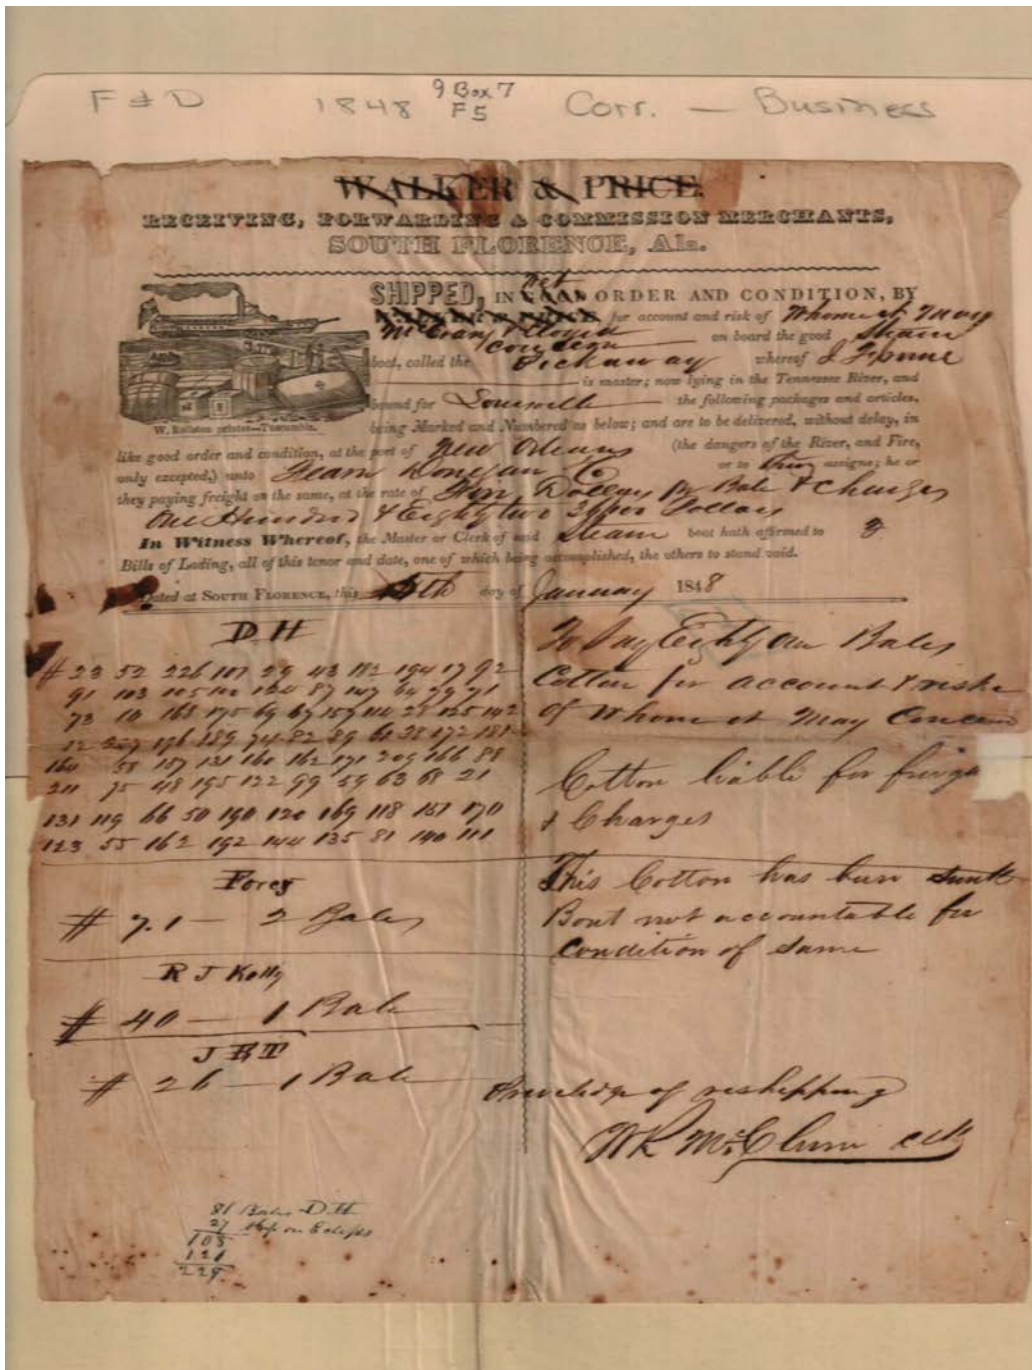 F & D 1848 9 Box 7 F5 Corr. — Business
WALKER & PRICE.
RECEIVING, FORWARDING & COMMISSION MERCHANTS,
SOUTH FLORENCE, Ala.
SHIPPED, IN GOOD Wet ORDER AND CONDITION, BY
WALKER & PRICE for account and risk of Whome it May
Concern on board the good Steam
boat, called the Pickaway whereof
is master; now lying in the Tennessee River, and
bound for Louisville the following packages and articles,
being Marked and Numbered as below; and are to be delivered, without delay, in
W. Ralston printer—Tuscumbia.
like good order and condition, at the port of New Orleans (the dangers of the River, and Fire,
only excepted,) unto Fearn Donegan & Co or to their assigns; he or
they paying freight on the same, at the rate of Dollars Pr Bale & Charges
One Hundred & Eighty two Dollars
In Witness Whereof, the Master or Clerk of said Steam boat hath affirmed to 3
Bills of Lading, all of this tenor and date, one of which being accomplished, the others to stand void.
Dated at SOUTH FLORENCE, this day of January 1848
D H
# 23 52 226 107 29 43 112 194 17 92
91 103 105 87 147 64 99 71
73 10 168 175 69 67 159 114 28 125 142
12 196 189 74 82 89 61 38 172 181
160 58 157 131 160 162 171 209 166 88
211 75 48 195 122 99 59 63 68 21
131 119 66 50 190 120 169 118 151 170
123 55 162 192 144 135 81 140 111
To Say Eighty One Bales
Cotton for account & riske
of Whome it May Concern
Cotton liable for
& Charges
Forcy
# 7.1 — 2 Bales
This Cotton has been sunk
Boat not accountable for
Condition of same
R J Kelly
# 40 — 1 Bale
J B T
# 26 — 1 Bale
Priveledge of reshipping
W R McClure clk
81 Bales D.H
27 Ship on Eclips
108
121
229